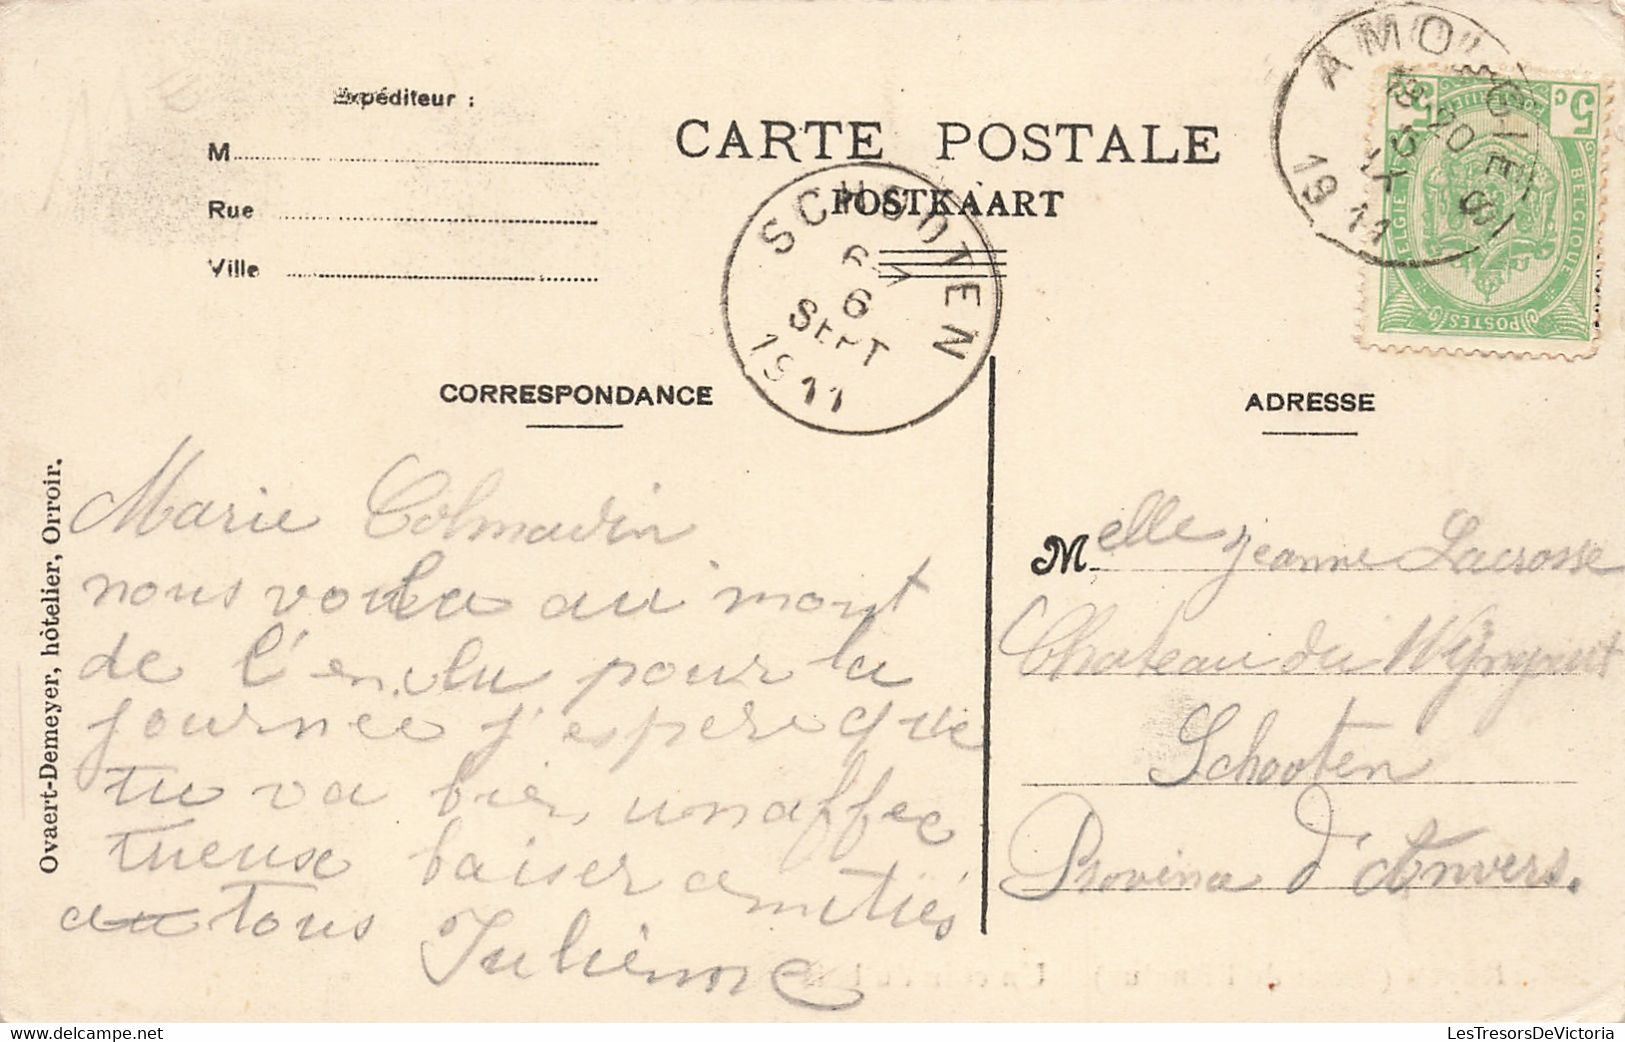 Expéditeur :
M
Rue
Ville
CARTE POSTALE
POSTKAART
SCHOOTEN
6
SEPT
1911
AMO
19 11
5c 5c
BELGIE BELGIQUE
POSTES POSTERIJEN
CORRESPONDANCE
ADRESSE
Ovaert-Demeyer, hôtelier, Orroir.
Marie
nous voila au mont
de l'enclu pour la
journée j'espere que
tu va bien un affec
tueuse baiser amitiés
a tous Julienne
Melle Jeanne Lacrosse
Chateau du
Schooten
Province d'Anvers.
LesTresorsDeVictoria